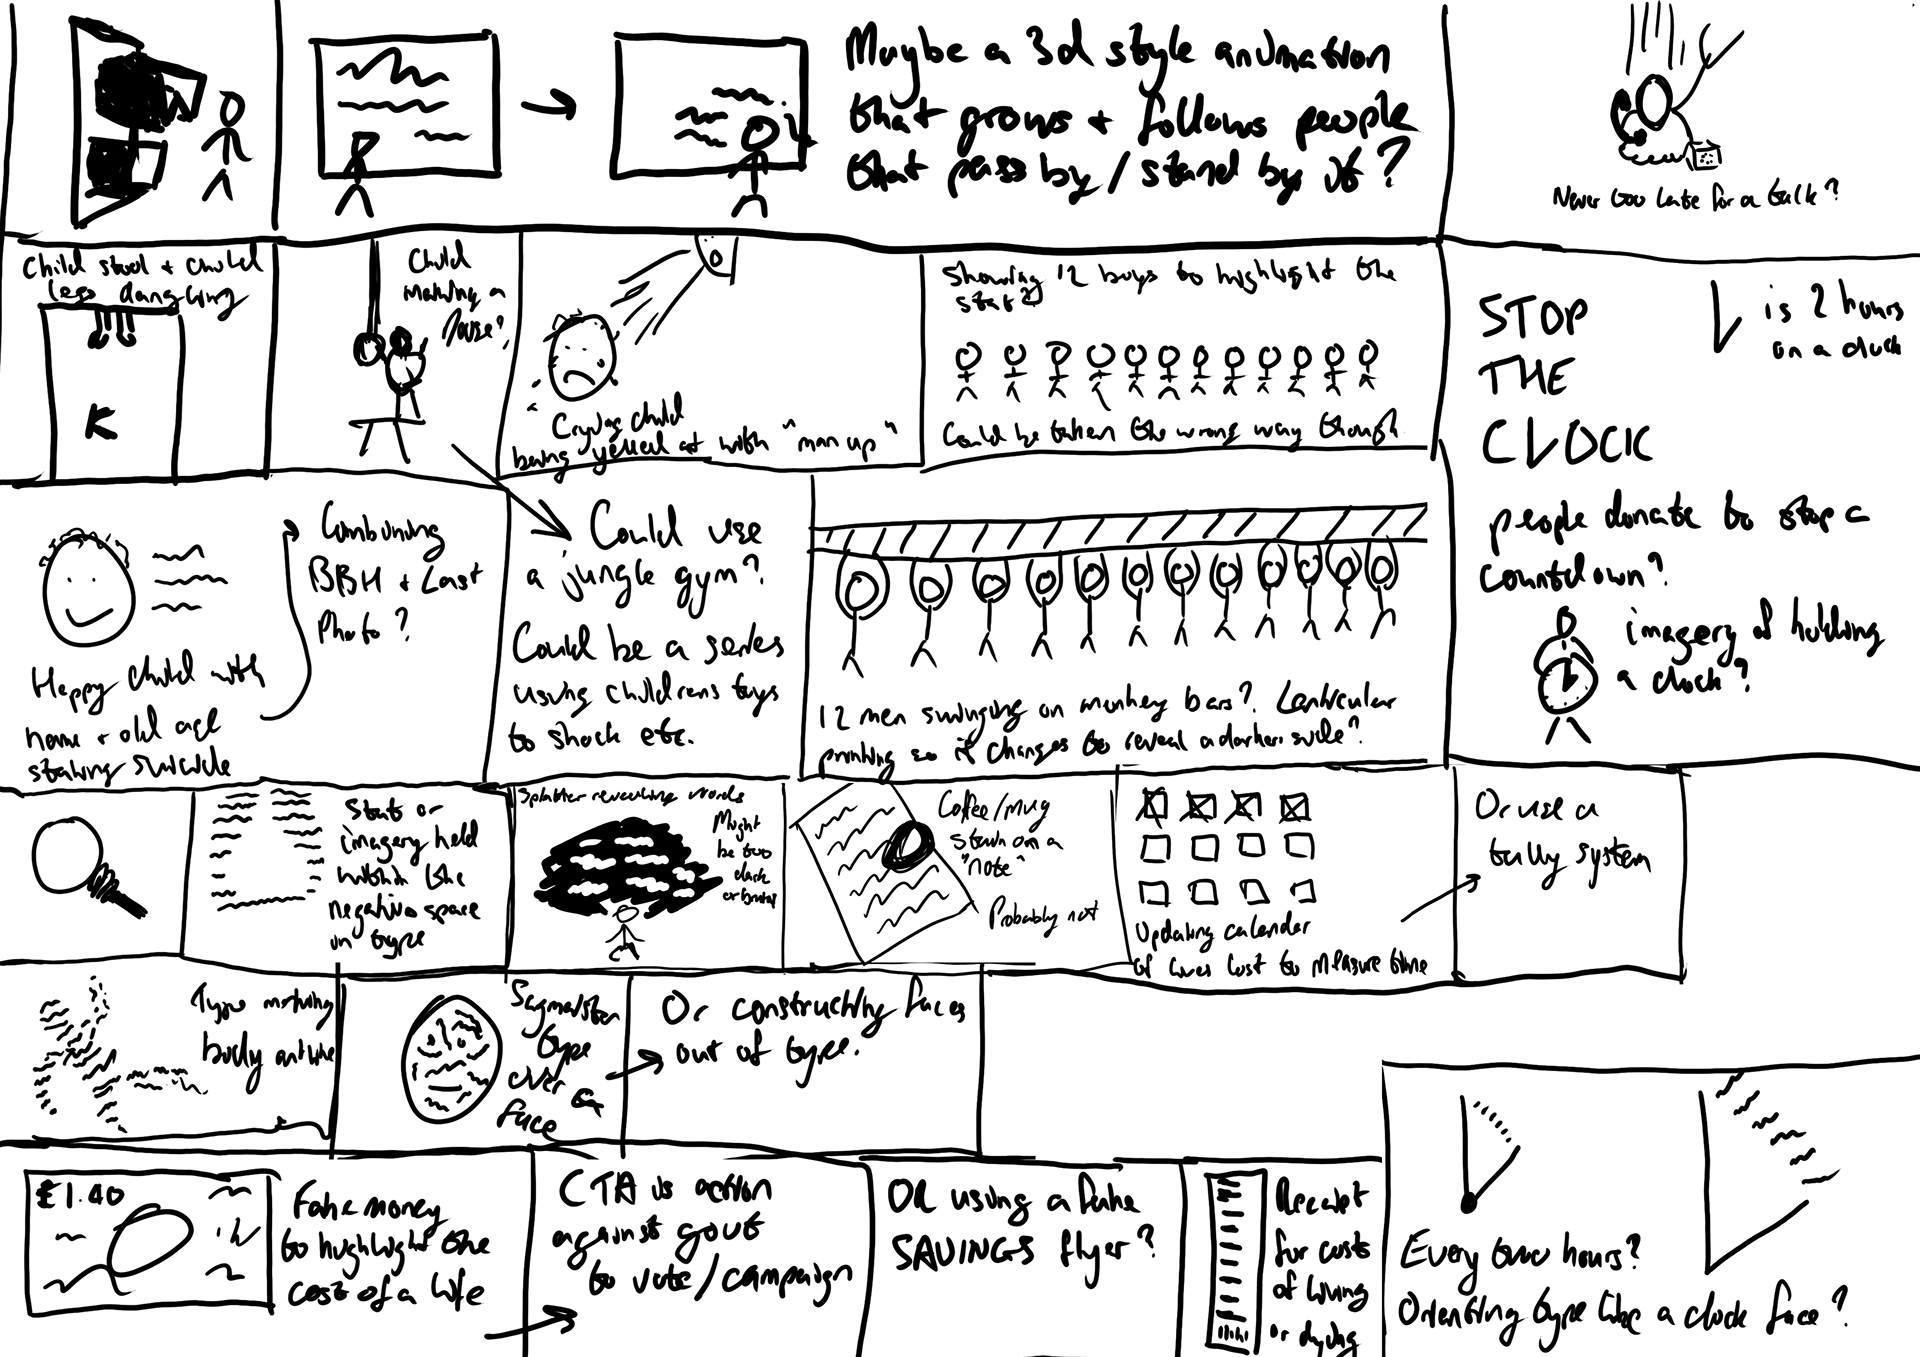 Maybe a 3d style animation
that grows + follows people
that pass by / stand by it?
Never too late for a talk?
Child stool + child
legs dangling
K
Child
making a
noose?
Crying child
being yelled at with "man up"
Showing 12 boys to highlight the
stat?
Could be taken the wrong way though
STOP
THE
CLOCK
is 2 hours
on a clock
people donate to stop a
countdown?
imagery of holding
a clock?
Happy child with
name + old age
stating suicide
Combining
BBH + Last
Photo?
Could use
a jungle gym?
Could be a series
using childrens toys
to shock etc.
12 men swinging on monkey bars? Lenticular
printing so it changes to reveal a darker side?
Stat or
imagery held
within the
negative space
in type
Splatter revealing words
Might
be too
dark
or brutal
Coffee/mug
stain on a
"note"
Probably not
Updating calender
of lives lost to measure time
Or use a
tally system
Type making
body outline
Sagmeister
type
over a
face
Or constructing faces
out of type.
£1.40
Fake money
to highlight the
cost of a life
CTA is action
against govt
to vote/campaign
OR using a fake
SAVINGS flyer?
Receipt
for costs
of living
or dying
Every two hours?
Orienting type like a clock face?